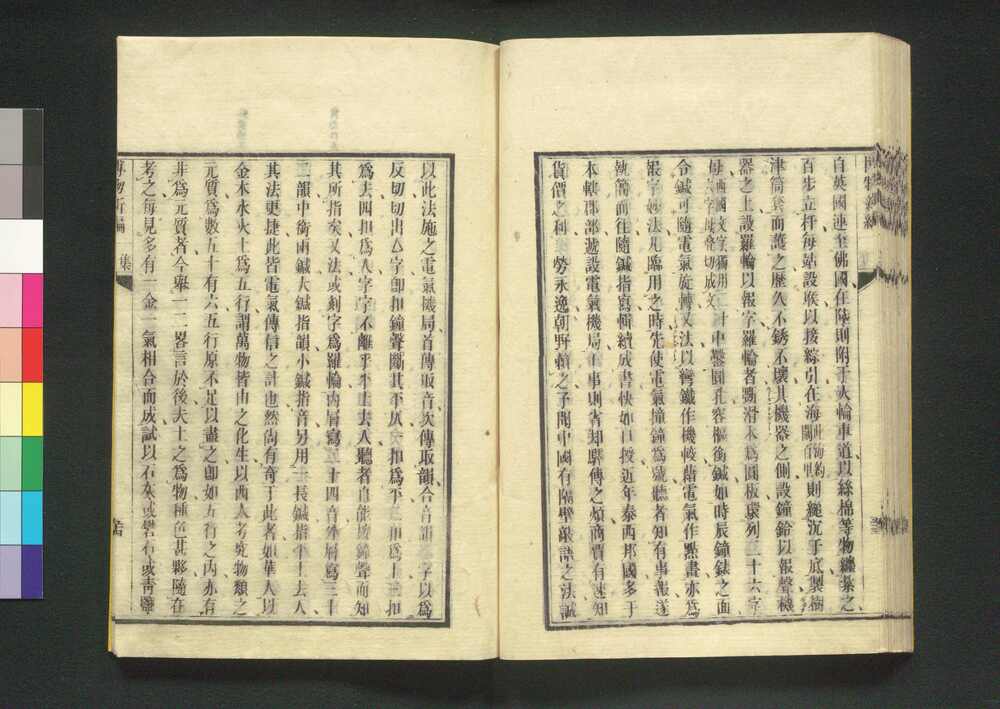 自英國連至佛國、在陸則附于火輪車道以絲棉等物纏紮之、
百步立杆每站設喉以接綜引在海則繩沉于底製樹
津筒套而護之歷久不銹不壞其機器之側設鐘鈴以報聲機
器之上設羅輪以報字羅輪者斵滑木爲圓板環列二十六字
母西國文字獨用二十六字母叠切成文中鑿圓孔容樞後鍼如時辰鐘錶之面
令鍼可隨電氣旋轉又法以彎鐵作機轅藉電氣作點畫亦爲
報字妙法凡臨用之時先使電氣撞鐘爲號聽者知有事報遂
執簡而往隨鍼指寫輯續成書快如口授近年泰西邦國多于
本轄郡部遞設電氣機局軍事則省却驛傳之煩商賈有速知
貨價之利、勞永逸朝野賴之予聞中國有隔壁敲語之法誠
以此法施之電氣機局首傳取音次傳取韻合音韻
字以爲
反切切出公字卽扣鐘聲斷其平仄
扣爲平二扣爲上三扣
爲去四扣爲入字字不離乎平上去入聽者自能按鐘聲而知
其所指矣又法或刻字爲羅輪內層寫三十四音外層寫三十
三韻中銜兩鍼大鍼指韻小鍼指音另用一長鍼指平上去入
其法更捷此皆電氣傳信之計也然尚有奇于此者如華人以
金木水火土爲五行謂萬物皆由之化生以西人考究物類之
元質爲數五十有六五行原不足以盡之卽如五行之內亦有
非爲元質者今舉一二畧言於後夫土之爲物種色甚夥隨在
考之每見多有一金一氣相合而成試以石灰或礬石或靑礬
博物新編
集